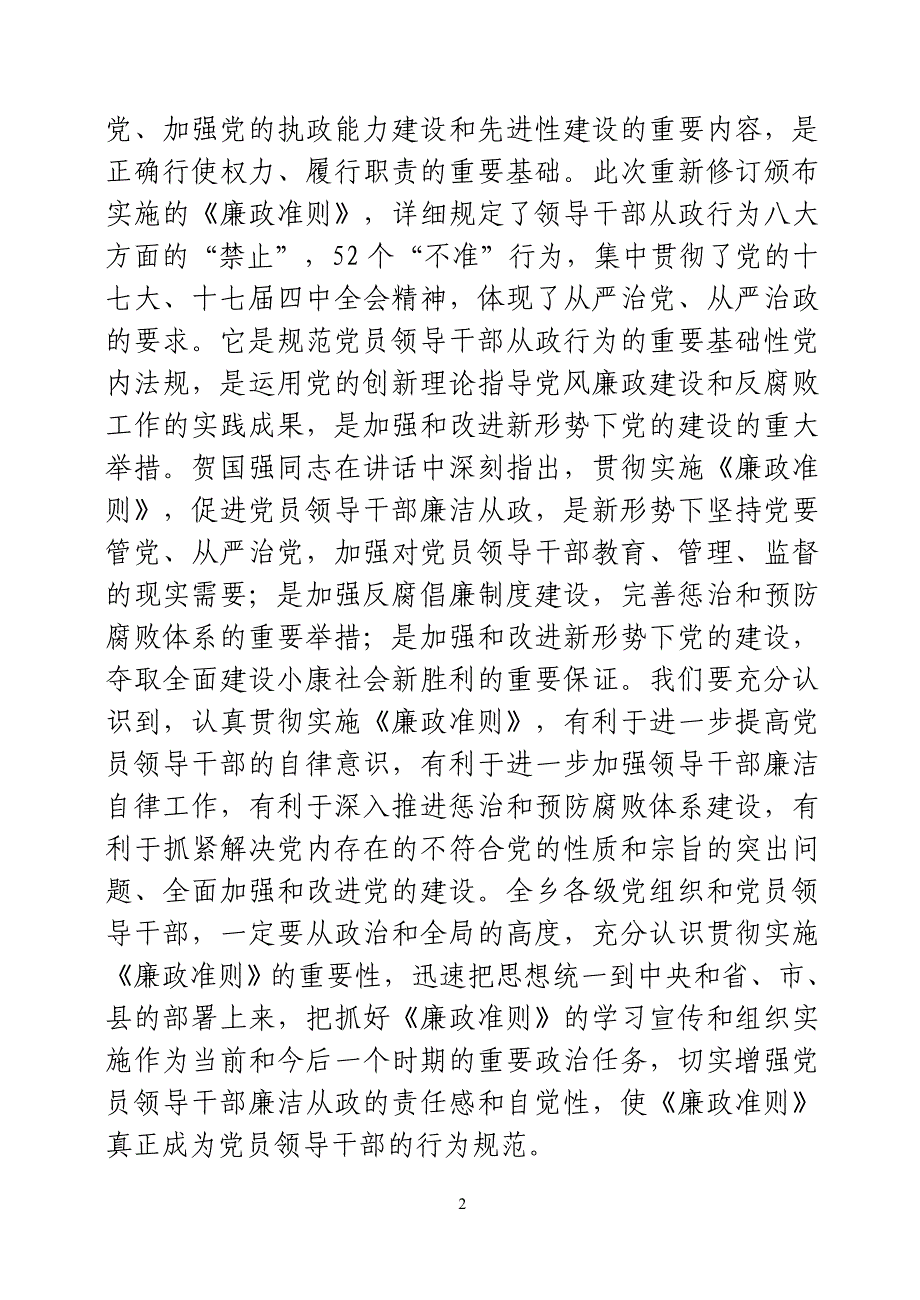 党、加强党的执政能力建设和先进性建设的重要内容，是
正确行使权力、履行职责的重要基础。此次重新修订颁布
实施的《廉政准则》，详细规定了领导干部从政行为八大
方面的“禁止”，52个“不准”行为，集中贯彻了党的十
七大、十七届四中全会精神，体现了从严治党、从严治政
的要求。它是规范党员领导干部从政行为的重要基础性党
内法规，是运用党的创新理论指导党风廉政建设和反腐败
工作的实践成果，是加强和改进新形势下党的建设的重大
举措。贺国强同志在讲话中深刻指出，贯彻实施《廉政准
则》，促进党员领导干部廉洁从政，是新形势下坚持党要
管党、从严治党，加强对党员领导干部教育、管理、监督
的现实需要；是加强反腐倡廉制度建设，完善惩治和预防
腐败体系的重要举措；是加强和改进新形势下党的建设，
夺取全面建设小康社会新胜利的重要保证。我们要充分认
识到，认真贯彻实施《廉政准则》，有利于进一步提高党
员领导干部的自律意识，有利于进一步加强领导干部廉洁
自律工作，有利于深入推进惩治和预防腐败体系建设，有
利于抓紧解决党内存在的不符合党的性质和宗旨的突出问
题、全面加强和改进党的建设。全乡各级党组织和党员领
导干部，一定要从政治和全局的高度，充分认识贯彻实施
《廉政准则》的重要性，迅速把思想统一到中央和省、市、
县的部署上来，把抓好《廉政准则》的学习宣传和组织实
施作为当前和今后一个时期的重要政治任务，切实增强党
员领导干部廉洁从政的责任感和自觉性，使《廉政准则》
真正成为党员领导干部的行为规范。
2